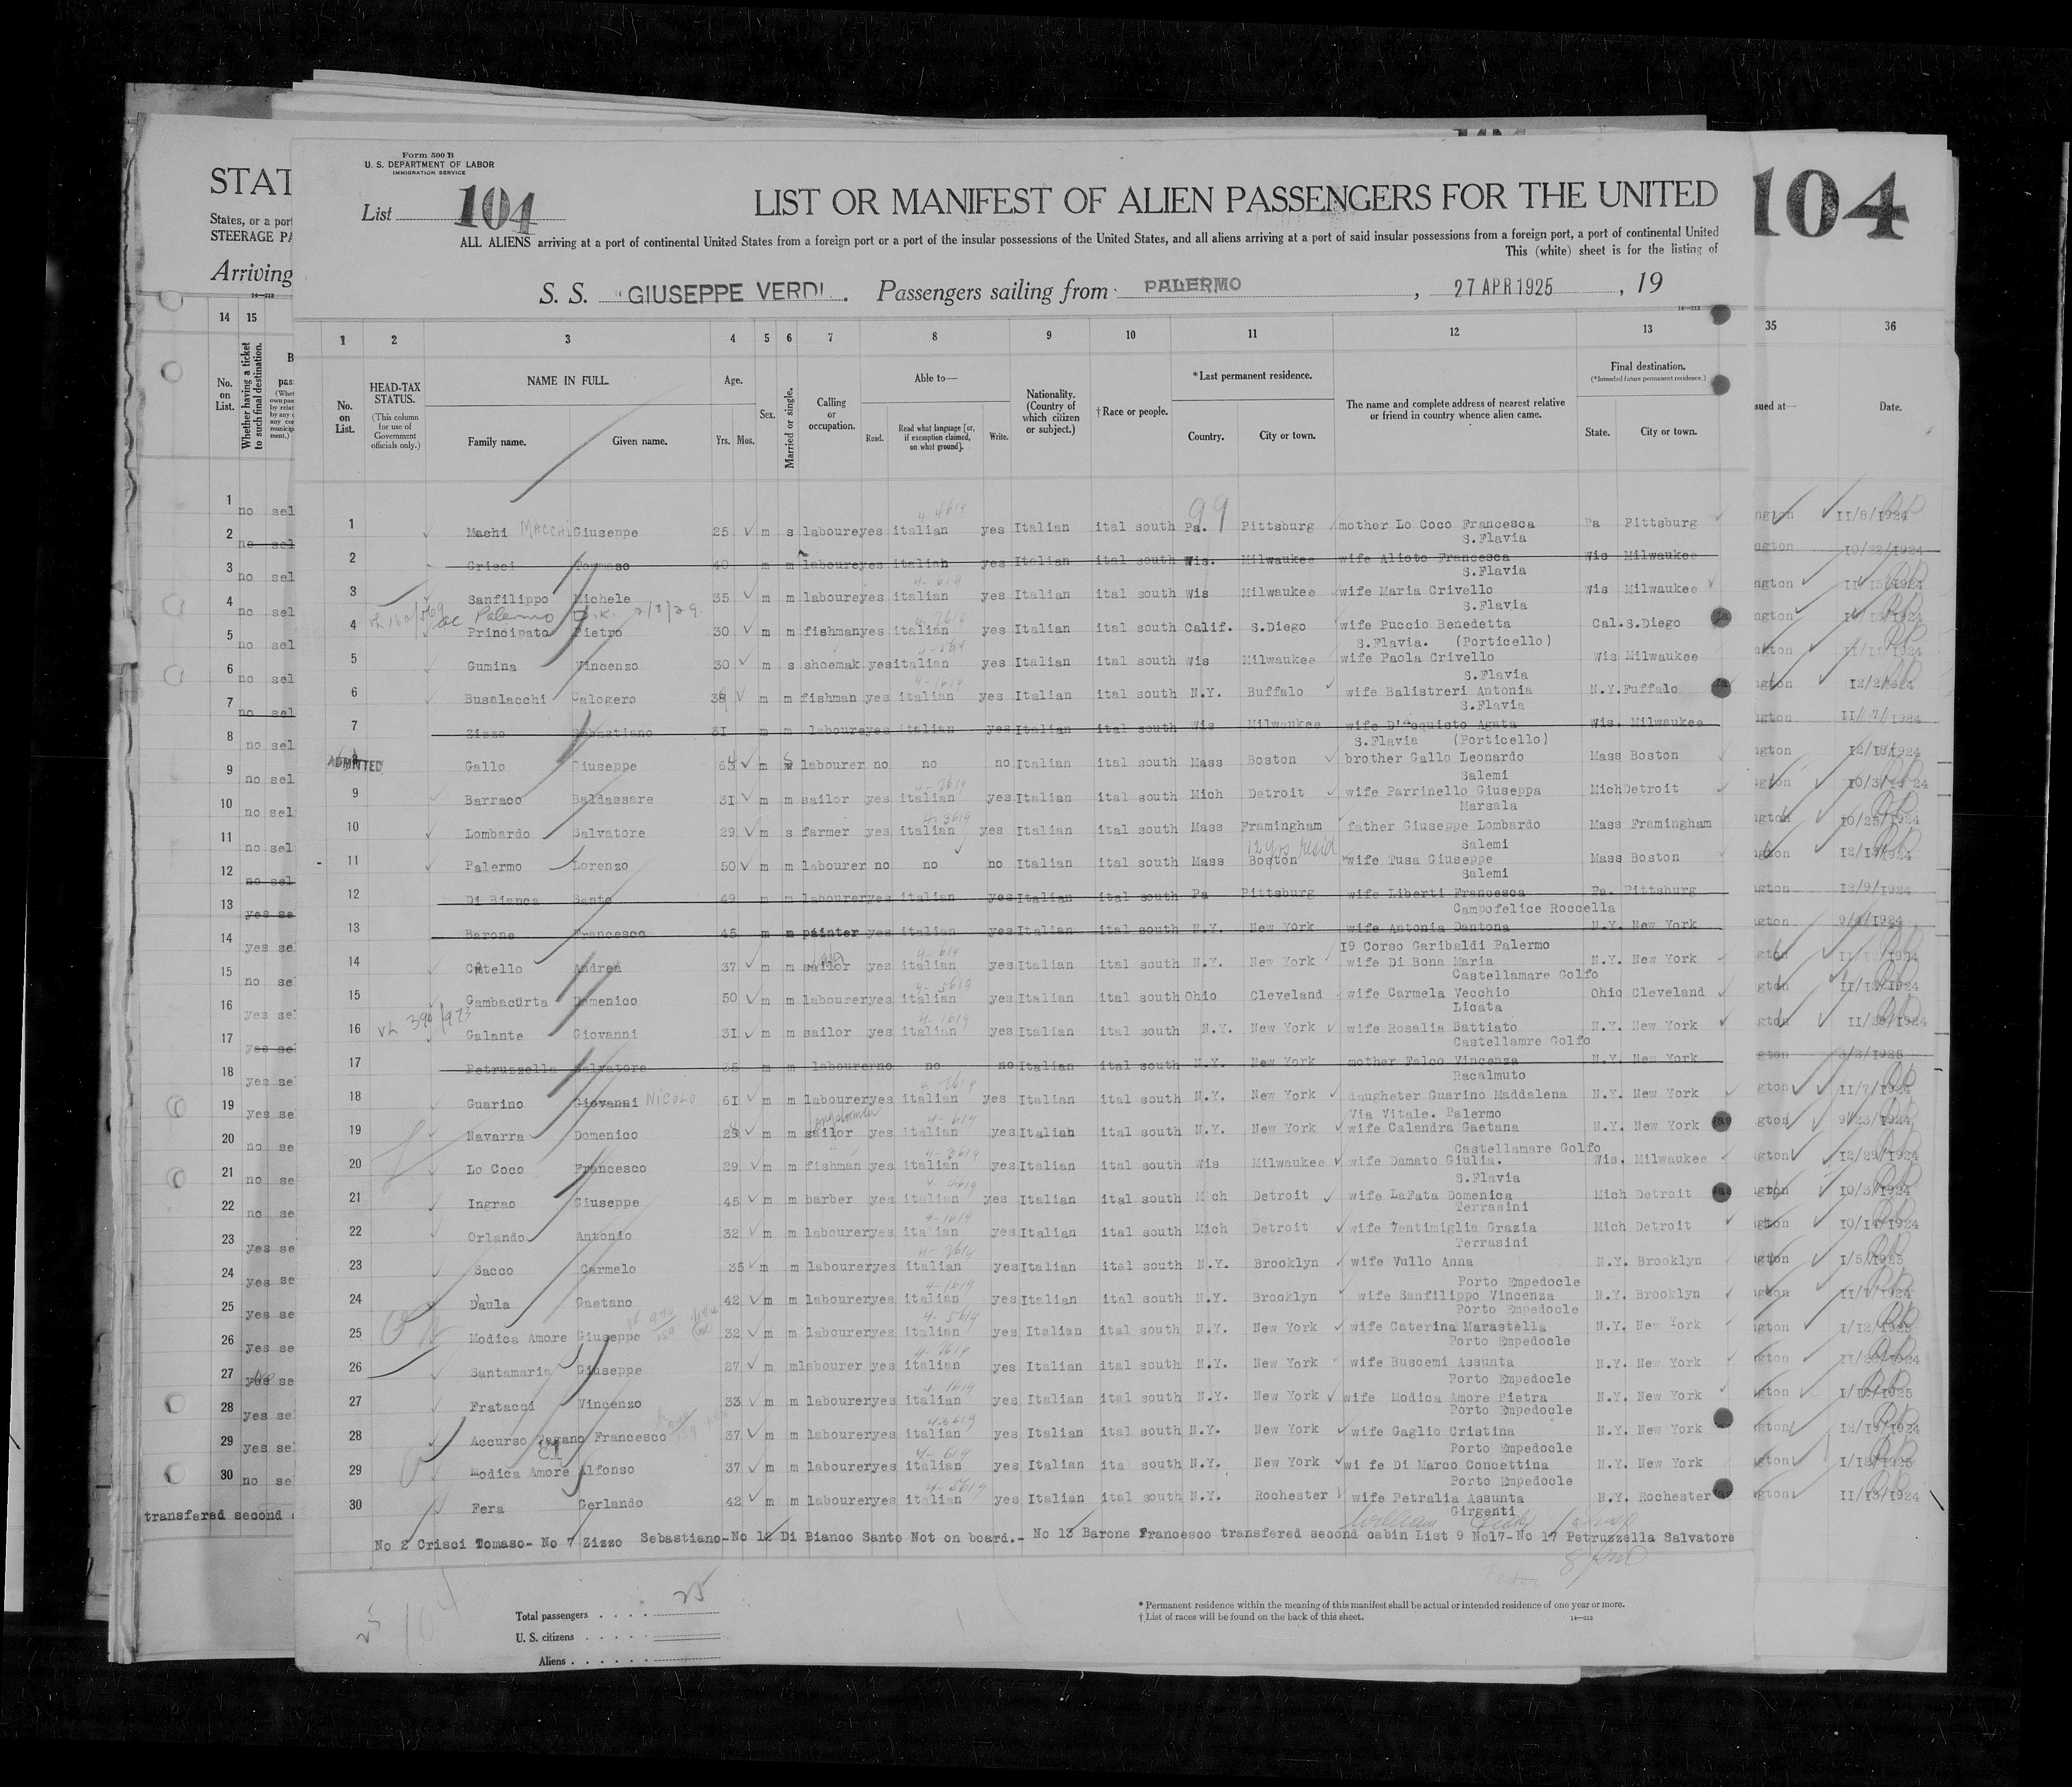 Form 500 B
U. S. DEPARTMENT OF LABOR
IMMIGRATION SERVICE
List 104
LIST OR MANIFEST OF ALIEN PASSENGERS FOR THE UNITED
104
ALL ALIENS arriving at a port of continental United States from a foreign port or a port of the insular possessions of the United States, and all aliens arriving at a port of said insular possessions from a foreign port, a port of continental United
This (white) sheet is for the listing of
S. S. GIUSEPPE VERDI. Passengers sailing from PALERMO, 27 APR 1925, 19
STAT
States, or a port
STEERAGE PA
Arriving
1 2 3 4 5 6 7 8 9 10 11 12 13
No. on List.
HEAD-TAX STATUS.
(This column for use of Government officials only.)
NAME IN FULL.
Family name. Given name.
Age. Yrs. Mos.
Sex.
Married or single.
Calling or occupation.
Able to—
Read. Read what language [or, if exemption claimed, on what ground]. Write.
Nationality. (Country of which citizen or subject.)
† Race or people.
*Last permanent residence.
Country. City or town.
The name and complete address of nearest relative or friend in country whence alien came.
Final destination.
(*Intended future permanent residence.)
State. City or town.
14 15
No. on List.
Whether having a ticket to such final destination.
35 36
sued at— Date.
1 Machi MACCHI Giuseppe 25 m s laboure yes italian yes Italian ital south Pa. Pittsburg mother Lo Coco Francesca Pa Pittsburg 11/8/1924
S.Flavia
2 Crisci Tommaso 40 m m laboure yes italian yes Italian ital south Wis. Milwaukee wife Alioto Francesca Wis Milwaukee 10/22/1924
S.Flavia
3 Sanfilippo Michele 35 m m laboure yes italian yes Italian ital south Wis Milwaukee wife Maria Crivello Wis Milwaukee
S.Flavia
4 Principato Pietro 30 m m fishman yes italian yes Italian ital south Calif. S.Diego wife Puccio Benedetta Cal. S.Diego
S.Flavia. (Porticello)
5 Gumina Vincenzo 30 m s shoemak yes italian yes Italian ital south Wis Milwaukee wife Paola Crivello Wis Milwaukee
S.Flavia
6 Busalacchi Calogero m m fishman yes italian yes Italian ital south N.Y. Buffalo wife Balistreri Antonia N.Y. Fuffalo
S.Flavia
7 Zizzo Sebastiano 31 m m laboure yes italian yes Italian ital south Wis Milwaukee wife D'Acquisto Agata Wis. Milwaukee 11/ 7/ 1924
S.Flavia (Porticello)
ADMITTED Gallo Giuseppe m labourer no no no Italian ital south Mass Boston brother Gallo Leonardo Mass Boston
Salemi
9 Barraco Baldassare 31 m m sailor yes italian yes Italian ital south Mich Detroit wife Parrinello Giuseppa Mich Detroit
Marsala
10 Lombardo Salvatore 29 m s farmer yes italian yes Italian ital south Mass Framingham father Giuseppe Lombardo Mass Framingham 10/25/1924
Salemi
11 Palermo Lorenzo 50 m m labourer no no no Italian ital south Mass Boston wife Tusa Giuseppe Mass Boston
Salemi
12 Di Bianca Santo 49 m m labourer yes italian yes Italian ital south Pa Pittsburg wife Liberti Francesca Pa. Pittsburg 12/9/1924
Campofelice Roccella
13 Barone Francesco 45 m m painter yes italian yes Italian ital south N.Y. New York wife Antonia Dantona N.Y. New York
19 Corso Garibaldi Palermo
14 Catello Andrea 37 m m sailor yes italian yes Italian ital south N.Y. New York wife Di Bona Maria N.Y. New York
Castellamare Golfo
15 Gambacurta Domenico 50 m m labourer yes italian yes Italian ital south Ohio Cleveland wife Carmela Vecchio Ohio Cleveland
Licata
16 Galante Giovanni 31 m m sailor yes italian yes Italian ital south N.Y. New York wife Rosalia Battiato N.Y. New York
Castellamre Golfo
17 Petruzzella Salvatore 35 m m labourer no no no Italian ital south N.Y. New York mother Falco Vincenza N.Y. New York
Racalmuto
18 Guarino Giovanni NICOLO 61 m m labourer yes italian yes Italian ital south N.Y. New York daugheter Guarino Maddalena N.Y. New York 11/7/1924
Via Vitale. Palermo
19 Navarra Domenico m m sailor yes italian yes Italian ital south N.Y. New York wife Calandra Gaetana N.Y. New York 9/23/1924
Castellamare Golfo
20 Lo Coco Francesco 29 m m fishman yes italian yes Italian ital south Wis Milwaukee wife Damato Giulia. Wis. Milwaukee 12/29/1924
S.Flavia
21 Ingrao Giuseppe 45 m m barber yes italian yes Italian ital south Mich Detroit wife LaFata Domenica Mich Detroit 10/3/1924
Terrasini
22 Orlando Antonio 32 m m labourer yes italian yes Italian ital south Mich Detroit wife Ventimiglia Grazia Mich Detroit 10/14/1924
Terrasini
23 Sacco Carmelo 35 m m labourer yes italian yes Italian ital south N.Y. Brooklyn wife Vullo Anna N.Y. Brooklyn 1/5/1925
Porto Empedocle
24 Daula Gaetano 42 m m labourer yes italian yes Italian ital south N.Y. Brooklyn wife Sanfilippo Vincenza N.Y. Brooklyn
Porto Empedocle
25 Modica Amore Giuseppe 32 m m labourer yes italian yes Italian ital south N.Y. New York wife Caterina Marastella N.Y. New York 1/12/1925
Porto Empedocle
26 Santamaria Giuseppe 27 m m labourer yes italian yes Italian ital south N.Y. New York wife Buscemi Assunta N.Y. New York
Porto Empedocle
27 Fratacci Vincenzo 33 m m labourer yes italian yes Italian ital south N.Y. New York wife Modica Amore Pietra N.Y. New York
Porto Empedocle
28 Accurso Pagano Francesco 37 m m labourer yes italian yes Italian ital south N.Y. New York wife Gaglio Cristina N.Y. New York 12/19/1924
Porto Empedocle
29 Modica Amore Alfonso 37 m m labourer yes italian yes Italian ita south N.Y. New York wi fe Di Marco Concettina N.Y. New York
Porto Empedocle
30 Fera Gerlando 42 m m labourer yes italian yes Italian ital south N.Y. Rochester wife Petralia Assunta N.Y. Rochester 11/13/1924
Girgenti
transfered second
No 2 Crisci Tomaso- No 7 Zizzo Sebastiano-No 12 Di Bianco Santo Not on board.- No 13 Barone Francesco transfered second cabin List 9 No17-No 17 Petruzzella Salvatore
Total passengers . . . . 25
U. S. citizens . . . . .
Aliens . . . . . .
* Permanent residence within the meaning of this manifest shall be actual or intended residence of one year or more.
† List of races will be found on the back of this sheet.
14—213